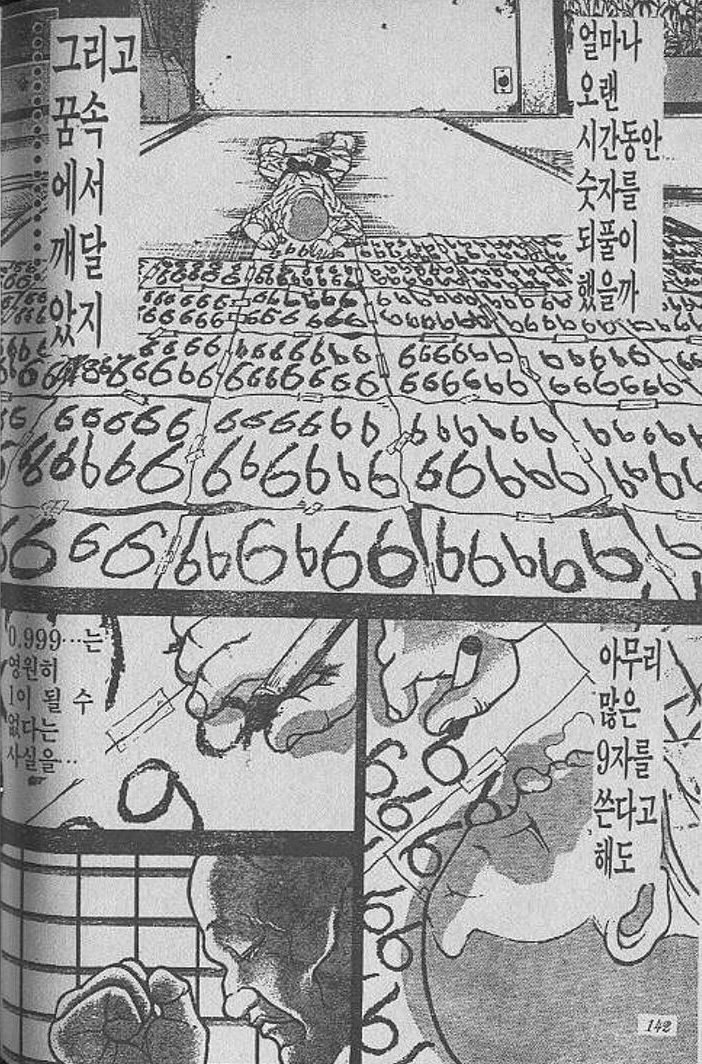 얼마나
오랜
시간동안
숫자를
되풀이
했을까
그리고
꿈속
에서
깨달
았지
아무리
많은
9자를
쓴다고
해도
0.999…는
영원히
1이 될 수
없다는
사실을…
142